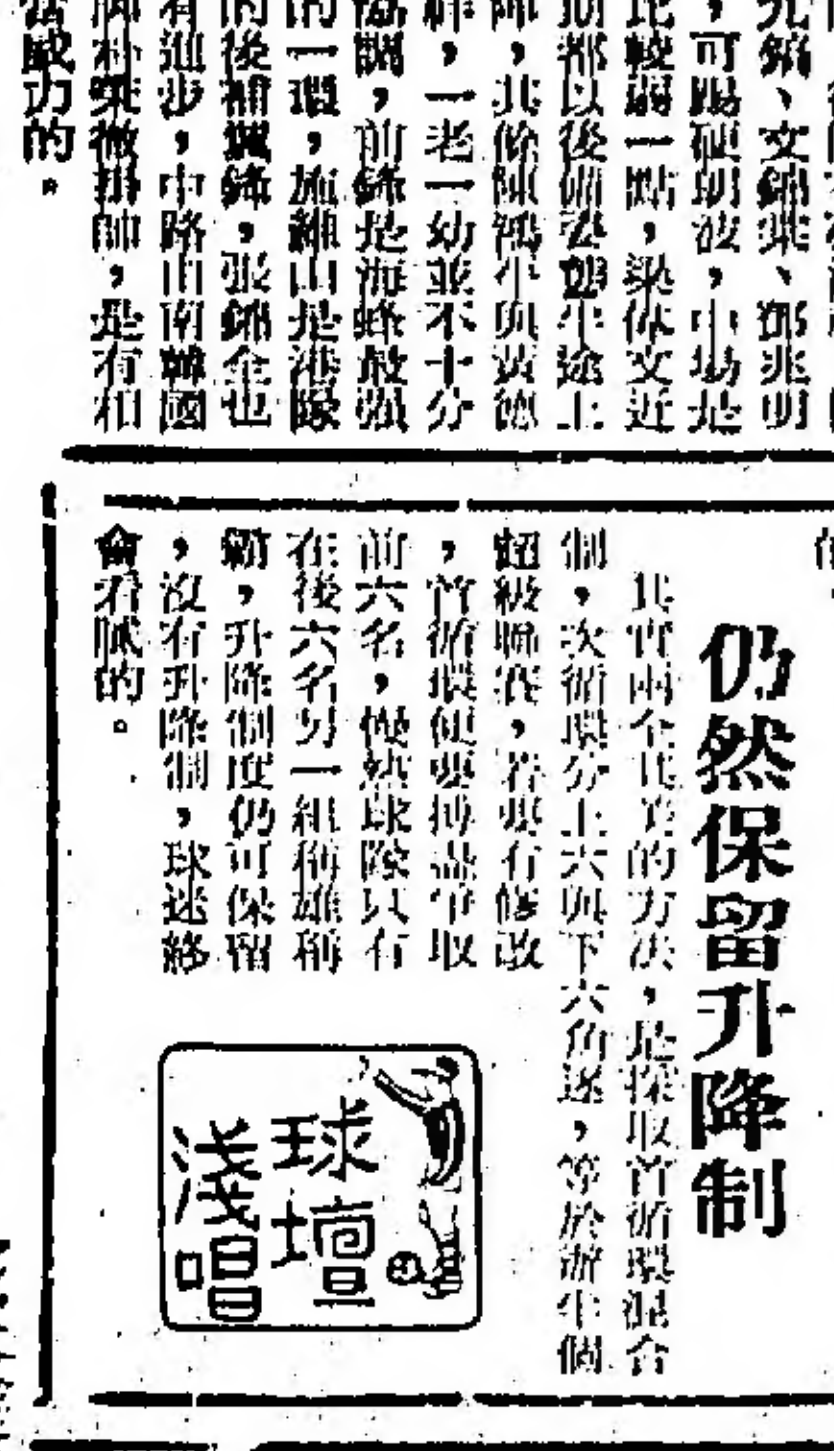 九鎬、文錦棠、鄧兆明
，可踢硬朗波，中場是
比較弱一點，梁偉文近
期都以後備姿態半途上
陣，其餘陳鴻平與黃德
祥，一老一幼並不十分
協調，前鋒是海蜂最强
的一環，施維山是港隊
的後補翼鋒，張錦全也
有進步，中路由南韓國
脚朴榮徹掛帥，是有相
當威力的。
仍然保留升降制
其實兩全其美的方法，是採取首循環混合
制，次循環分上六與下六角逐，等於辦半個
超級聯賽，若要有修改
，首循環便要搏盡爭取
前六名，慢熱球隊只有
在後六名另一組稱雄稱
霸，升降制度仍可保留
，沒有升降制，球迷終
會看膩的。
球壇
淺唱